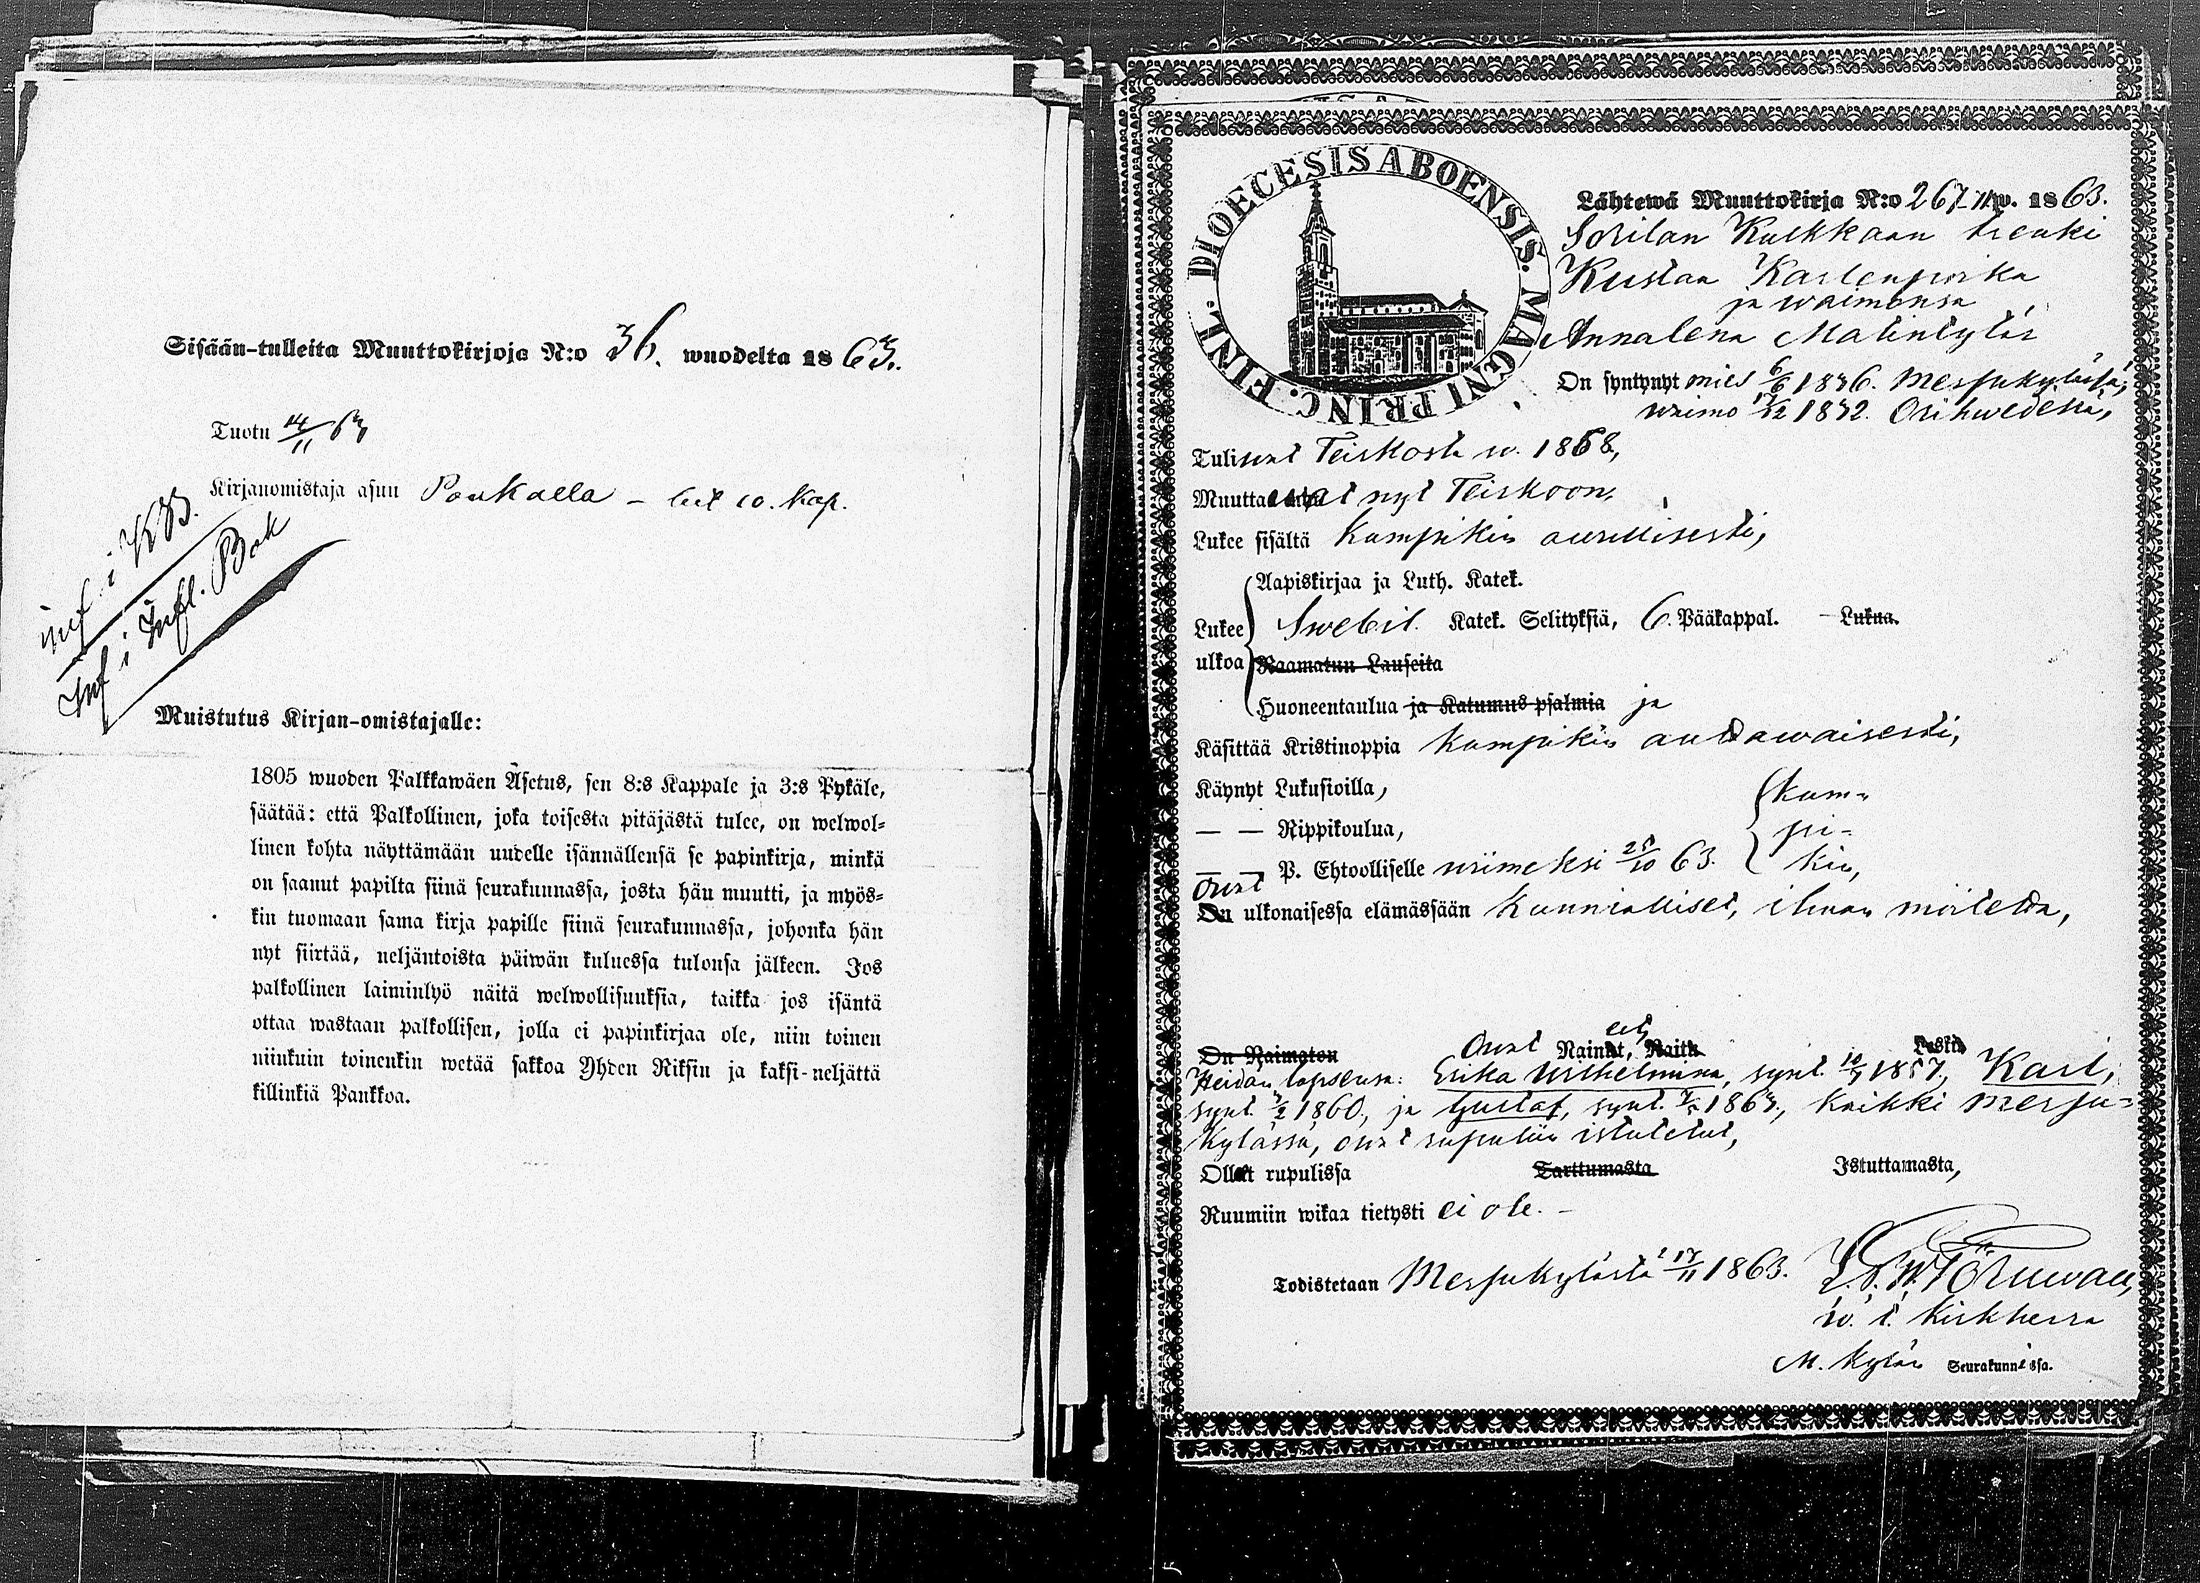 Sisään-tulleita Muuttokirjoja N:o 36. wuodelta 1863.
Tuotu 14/11 63
Kirjanomistaja asuu Paukalla – 10. Kap.
Inf i KB.
Inf i Infl. Bok
Muistutus Kirjan-omistajalle:
1805 wuoden Palkkawäen Asetus, sen 8:s Kappale ja 3:s Pykäle,
säätää: että Palkollinen, joka toisesta pitäjästä tulee, on welwol-
linen kohta näyttämään uudelle isännällensä se papinkirja, minkä
on saanut papilta siinä seurakunnassa, josta hän muutti, ja myös-
kin tuomaan sama kirja papille siinä seurakunnassa, johonka hän
nyt siirtää, neljäntoista päiwän kuluessa tulonsa jälkeen. Jos
palkollinen laiminlyö näitä welwollisuuksia, taikka jos isäntä
ottaa wastaan palkollisen, jolla ei papinkirjaa ole, niin toinen
niinkuin toinenkin wetää sakkoa Yhden Riksin ja kaksi-neljättä
killinkiä Pankkoa.
DIOECESIS ABOENSIS. MAGNI PRINC. FINL.
Lähtewä Muuttokirja N:o 267 w. 1863.
Sorilan Kulkkaan trenki
Kustaa Kaslenpoika
ja waimonsa
Annalena Matintytär
On syntynyt mies 6/6 1836. Messukylässä,
waimo /12 1832. Orihwedessä,
Tuliwat Teiskosta w. 1858,
Muuttawat nyt Teiskoon,
Lukee sisältä Kumpikin awullisesti,
Aapiskirjaa ja Luth. Katek.
Lukee ulkoa Swebil. Katek. Selityksiä, 6. Pääkappal. – Lukua.
Raamatun Lauseita
Huoneentaulua ja Katumus psalmia ja
Käsittää Kristinoppia Kumpikin auttawaisesti,
Käynyt Lukusioilla, Kum-
— — Rippikoulua, pi-
— — P. Ehtoolliselle wiimeksi 25/10 63. kin,
Owat
On ulkonaisessa elämässään Kunnialliset, ilman moitetta,
On Naimaton Owat Nainut, Naitu Leski
Heidän lapsensa: Erika Wilhelmina, synt. 10/7 1857, Karl,
synt. 7/2 1860, ja Gustaf, synt. 7/5 1863, kaikki Messu-
kylässä, owat rupuliin istutetut,
Ollut rupulissa Tarttumasta Istuttamasta,
Ruumiin wikaa tietysti ei ole. –
Todistetaan Messukylästä 17/11 1863.
w. t. Kirkherra
M. Kylän Seurakunnassa.